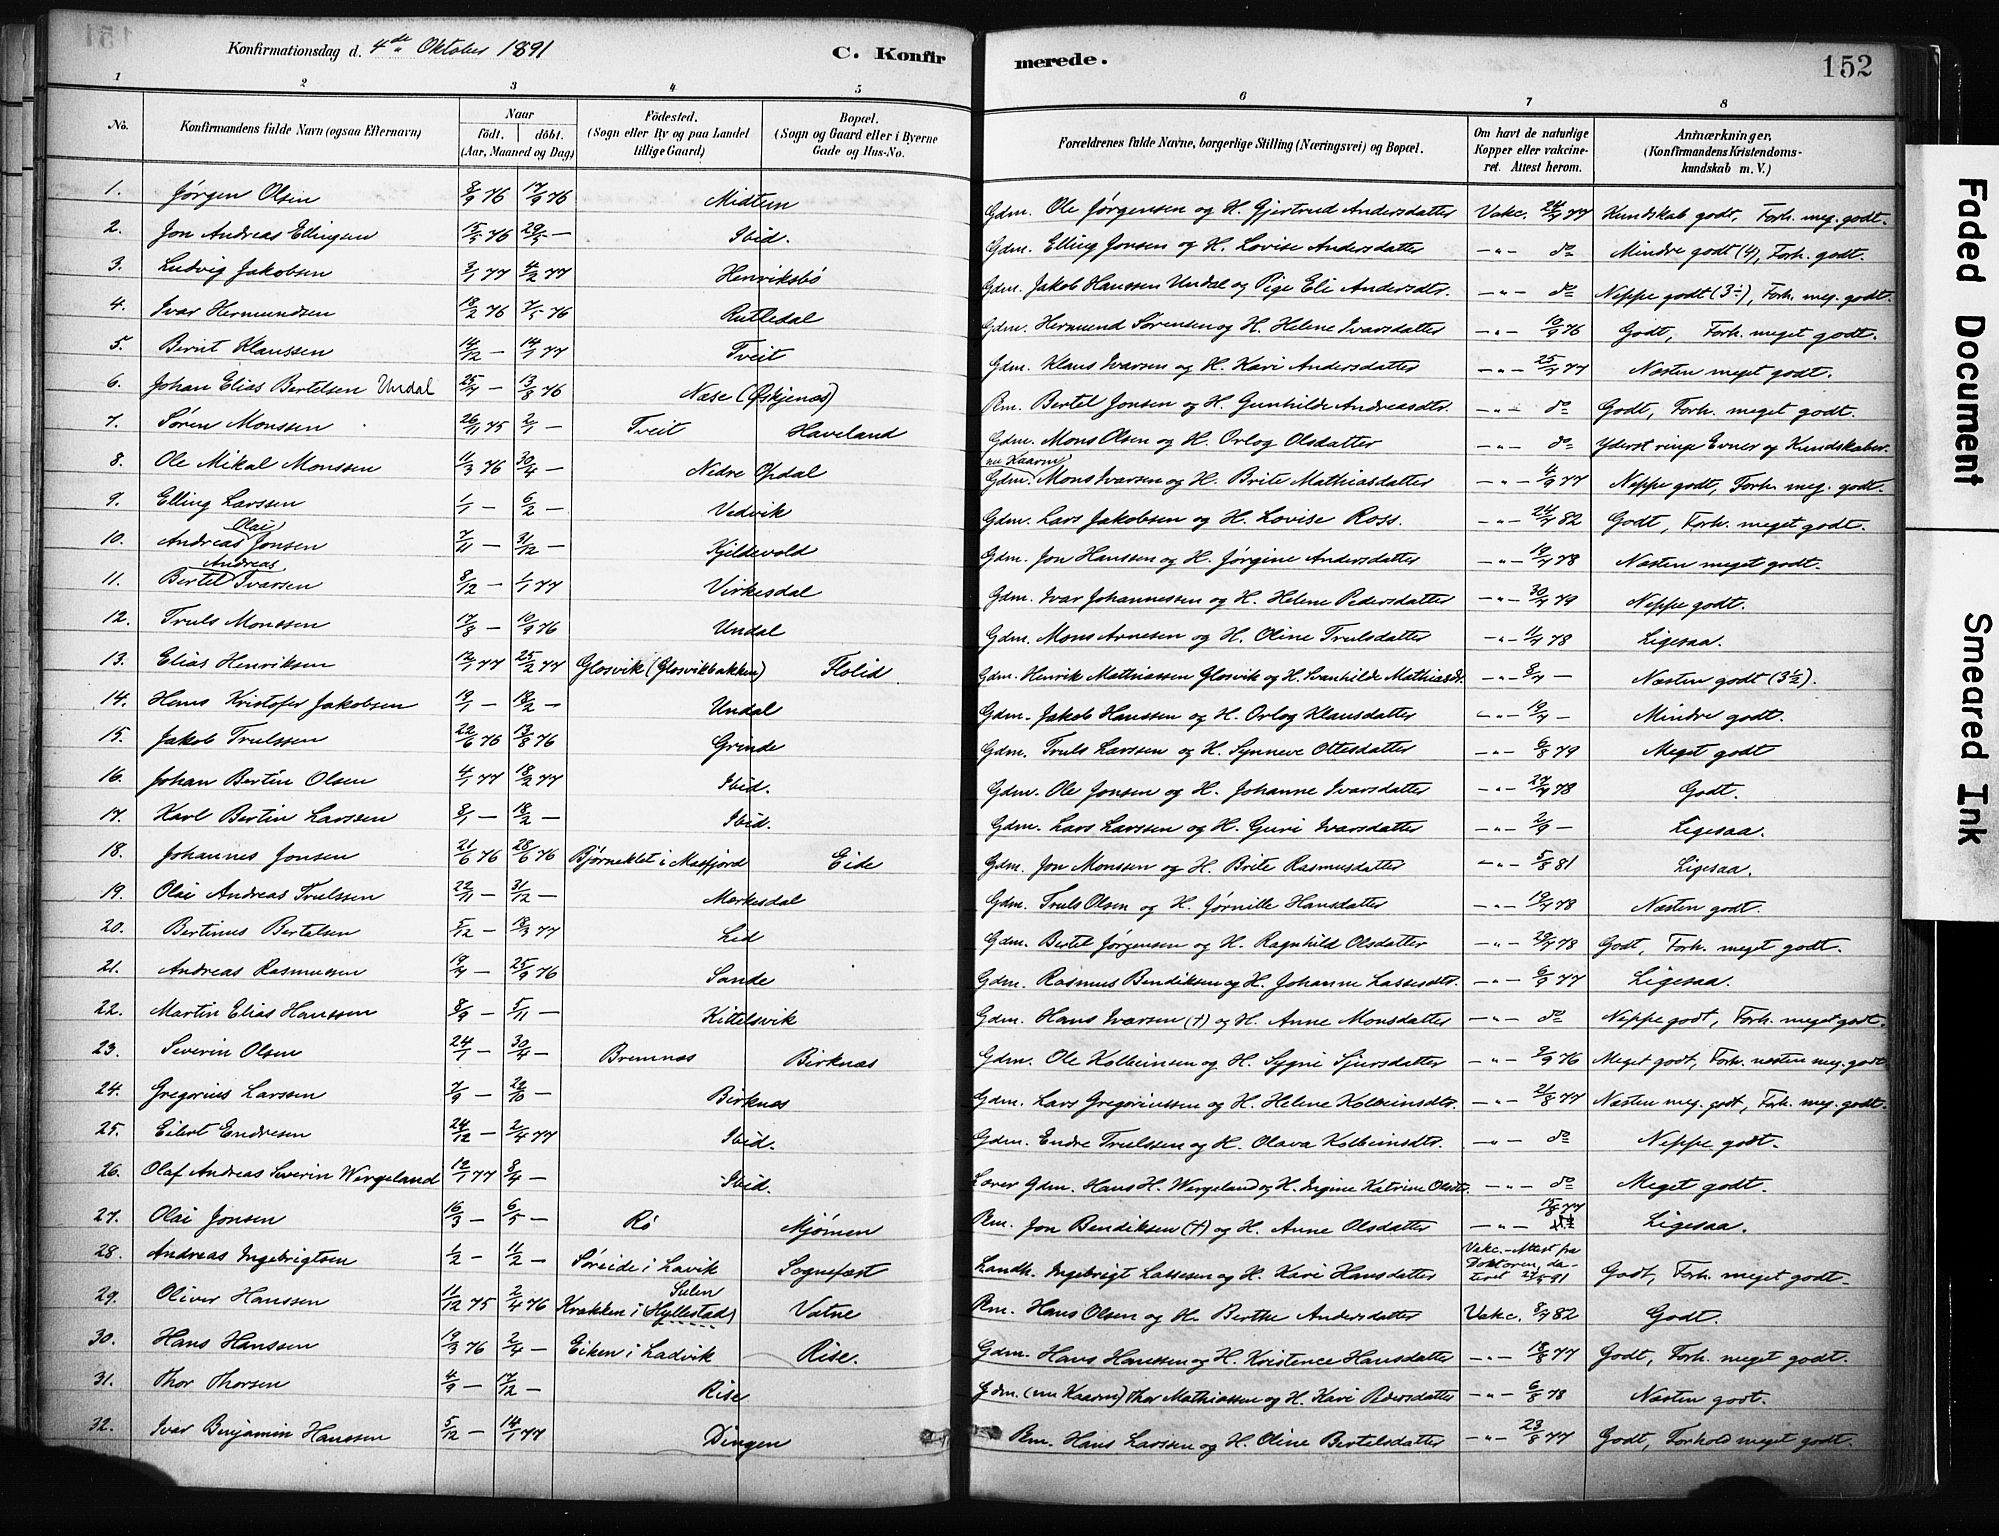 Konfirmationsdag d. 4de Oktober 1891
C. Konfirmerede.
152
1 2 3 4 5 6 7 8
No.
Konfirmandens fulde Navn (ogsaa Efternavn)
Naar
födt. döbt.
(Aar, Maaned og Dag)
Födested.
(Sogn eller By og paa Landet
tillige Gaard)
Bopæl.
(Sogn og Gaard eller i Byerne
Gade og Hus-No.
Forældrenes fulde Navne, borgerlige Stilling (Næringsvei) og Bopæl.
Om havt de naturlige
Kopper eller vakcine-
ret. Attest herom.
Anmærkninger.
(Konfirmandens Kristendoms-
kundskab m. V.)
1. Jørgen Olsen 8/9 76 17/9 76 Midtun Gdm. Ole Jørgensen og H. Gjertrud Andersdatter Vakc. 24/9 77 Kundskab godt, Forh. meg. godt.
2. Jon Andreas Ellingsen 15/5 76 29/5 — Ibid. Gdm. Elling Jonsen og H. Lovise Andersdatter —"— do Mindre godt (4), Forh. godt.
3. Ludvig Jakobsen 3/1 77 4/2 77 Henriksbø Gdm. Jakob Hanssen Undal og Pige Eli Andersdtr. —"— do Neppe godt (3÷), Forh. meg. godt.
4. Ivar Hermundsen 19/2 76 7/5 76 Rutledal Gdm. Hermund Sørensen og H. Helene Ivarsdatter —"— 10/9 76 Godt, Forh. meget godt.
5. Bernt Klaussen 14/12 — 14/1 77 Tveit Gdm. Klaus Ivarsen og H. Kari Andersdatter —"— 25/9 77 Næsten meget godt.
6. Johan Elias Bertelsen Undal 25/7 — 13/8 76 Nese (Øskjenes) Rm. Bertel Jonsen og H. Gunhilde Andreasdtr. —"— do Godt, Forh. meget godt.
7. Søren Monssen 26/11 75 2/1 — Tveit Haveland Gdm. Mons Olsen og H. Orlog Olsdatter —"— do Yderst ringe Evner og Kundskaber.
8. Ole Mikal Monssen 11/3 76 30/4 — Nedre Opdal Gdm. nu Kaarm. Mons Ivarsen og H. Brite Mathiasdatter —"— 4/9 77 Neppe godt, Forh. meg. godt.
9. Elling Larssen 1/1 — 6/2 — Vedvik Gdm. Lars Jakobsen og H. Lovise Ross. —"— 24/9 82 Godt, Forh. meget godt.
10. Andreas Olai Jonsen 7/11 — 31/12 — Kjeldevold Gdm. Jon Hanssen og H. Jørgine Andersdatter —"— 19/9 78 Næsten meget godt.
11. Bertel Andreas Ivarsen 8/12 — 1/1 77 Virkesdal Gdm. Ivar Johannessen og H. Helene Pedersdatter —"— 30/9 79 Neppe godt.
12. Truls Monssen 17/8 — 10/9 76 Undal Gdm. Mons Arnesen og H. Oline Trulsdatter —"— 11/9 78 Ligesaa.
13. Elias Henriksen 12/1 77 25/2 77 Glosvik (Glosvikbakken) Flolid. Gdm. Henrik Mathiassen Glosvik og H. Svanhilde Mathiasdtr. —"— 8/9 — Næsten godt (3½).
14. Hans Kristofer Jakobsen 19/1 — 18/2 — Undal Gdm. Jakob Hanssen og H. Orlog Klausdatter —"— 19/9 — Mindre godt.
15. Jakob Trulssen 22/6 76 13/8 76 Grinde Gdm. Truls Larssen og H. Synneve Ottesdatter —"— 6/8 79 Meget godt
16. Johan Bertin Olsen 4/1 77 18/2 77 Ibid. Gdm. Ole Jonsen og H. Johanne Ivarsdatter —"— 27/9 78 Godt.
17. Karl Bertin Larssen 8/1 — 18/2 — Ibid. Gdm. Lars Larssen og H. Guri Ivarsdatter —"— 2/9 — Ligesaa.
18. Johannes Jonsen 21/6 76 28/6 76 Bjørneklet i Masfjord Eide Gdm. Jon Monssen og H. Brite Rasmusdatter —"— 5/8 81 Ligesaa.
19. Olai Andreas Trulssen 22/11 — 31/12 — Merkesdal Gdm. Truls Olsen og H. Jørnille Hansdatter —"— 19/9 78 Næsten godt.
20. Bertinus Bertelsen 5/12 — 18/3 77 Lid Gdm. Bertel Jørgensen og H. Ragnhild Olsdatter —"— 29/9 78 Godt, Forh. meget godt.
21. Andreas Rasmussen 19/7 — 25/9 76 Sande Gdm. Rasmus Bendiksen og H. Johanne Lassesdtr. —"— 6/9 77 Ligesaa.
22. Martin Elias Hanssen 8/9 — 5/11 — Kittelsvik Gdm. Hans Ivarsen (†) og H. Anne Monsdatter —"— do Neppe godt, Forh. meget godt.
23. Severin Olsen 24/1 — 30/4 — Bremnes Birknes Gdm. Ole Kolbeinsen og H. Sygni Sjursdatter —"— 9/9 76 Meget godt, Forh. næsten meg. godt
24. Gregorius Larssen 7/9 — 22/10 — Birknes Gdm. Lars Gregoriussen og H. Helene Kolbeinsdtr. —"— 21/8 77 Næsten meg. godt, Forh. meg. godt.
25. Eilert Endresen 24/12 — 2/4 77 Ibid. Gdm. Endre Trulssen og H. Olava Kolbeinsdtr. —"— do Neppe godt.
26. Olaf Andreas Severin Wergeland 12/1 77 8/4 — Ibid. Lærer Gdm. Hans H. Wergeland og H. Ingine Katrine Olsdtr. —"— do Meget godt.
27. Olai Jonsen 16/3 — 6/5 — Rø Mjømen Rm. Jon Bendiksen (†) og H. Anne Olsdatter —"— 15/8 77 Ligesaa.
28. Andreas Ingebrigtsen 1/2 — 11/2 — Søreide i Lavik Sognefest Landh. Ingebrigt Lassesen og H. Kari Hansdatter Vakc.-Attest fra Doktoren, da- teret 27/5 91 Godt, Forh. meget godt.
29. Oliver Hanssen 11/12 75 2/4 76 Krakken i Hyllestad) Sulen Vatne Rm. Hans Olsen og H. Berthe Andersdatter Vakc. 8/9 82 Godt.
30. Hans Hanssen 19/3 76 2/4 — Eiken i Ladvik Rise. Gdm. Hans Hanssen og H. Kristence Hansdatter —"— 18/8 77 Godt, Forh. meget godt.
31. Thor Thorsen 4/9 — 17/12 — Rise Gdm. (nu Kaarm) Thor Mathiassen og H. Kari Pedersdatter —"— 6/8 78 Næsten godt.
32. Ivar Benjamin Hanssen 5/12 — 14/1 77 Dingen Rm. Hans Larssen og H. Oline Bertelsdatter —"— 23/8 77 Godt, Forhold meget godt.
Faded Document
Smeared Ink